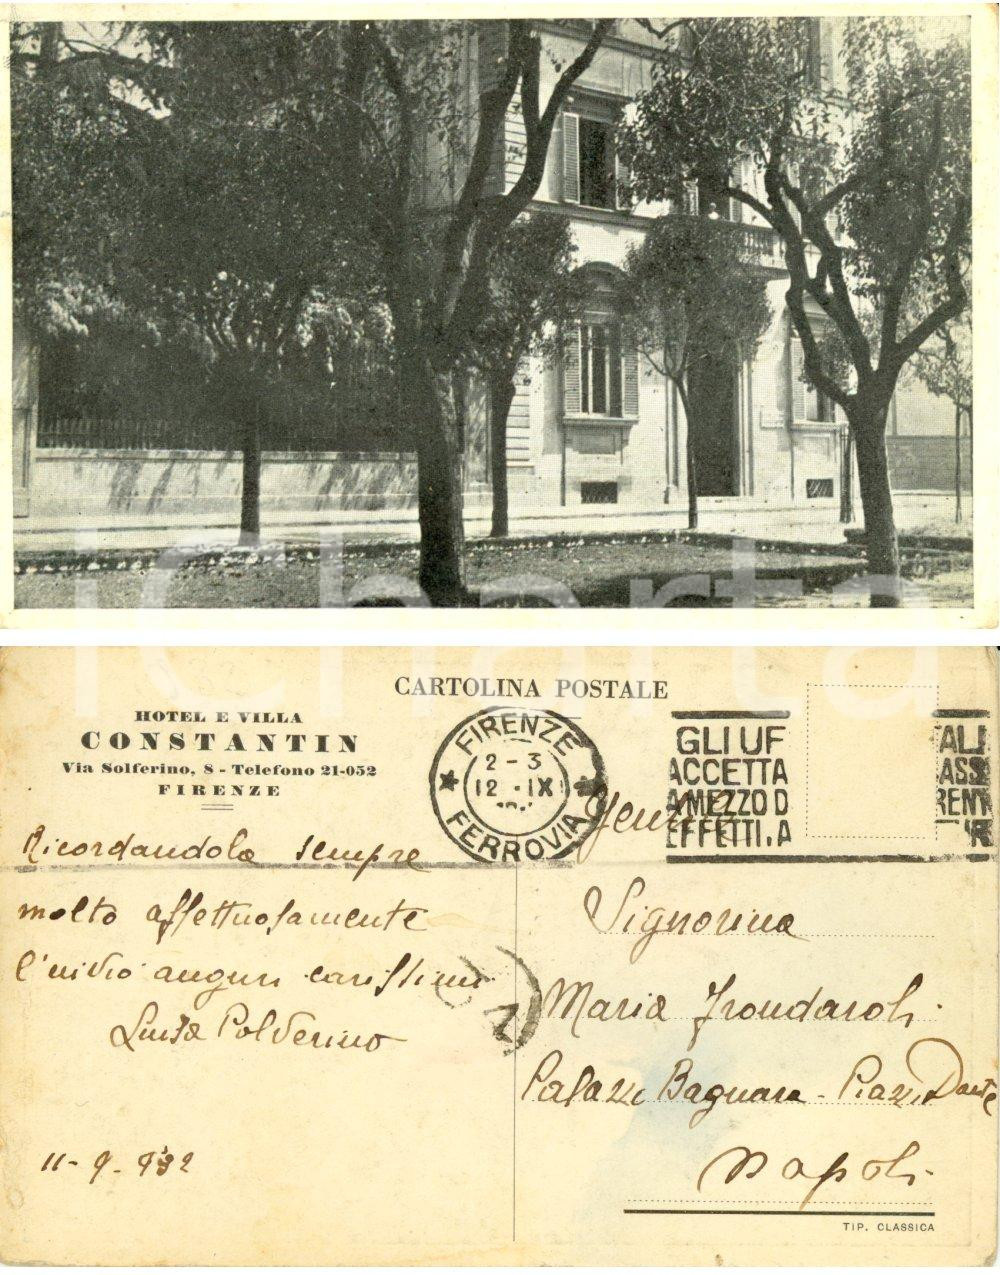 iCharta
CARTOLINA POSTALE
HOTEL E VILLA
CONSTANTIN
Via Solferino, 8 - Telefono 21-052
FIRENZE
FIRENZE
2-3
12 · IX
FERROVIA
GLI UF
ACCETTA
A MEZZO D
EFFETTI. A
ALI
ASS
RENT
Ricordandola sempre
molto affettuosamente
l'invio auguri carissimi
Luisa Polverino
11-9-932
Signorina
Maria Frondaroli
Palazzo Bagnara - Piazza Dante
Napoli
TIP. CLASSICA